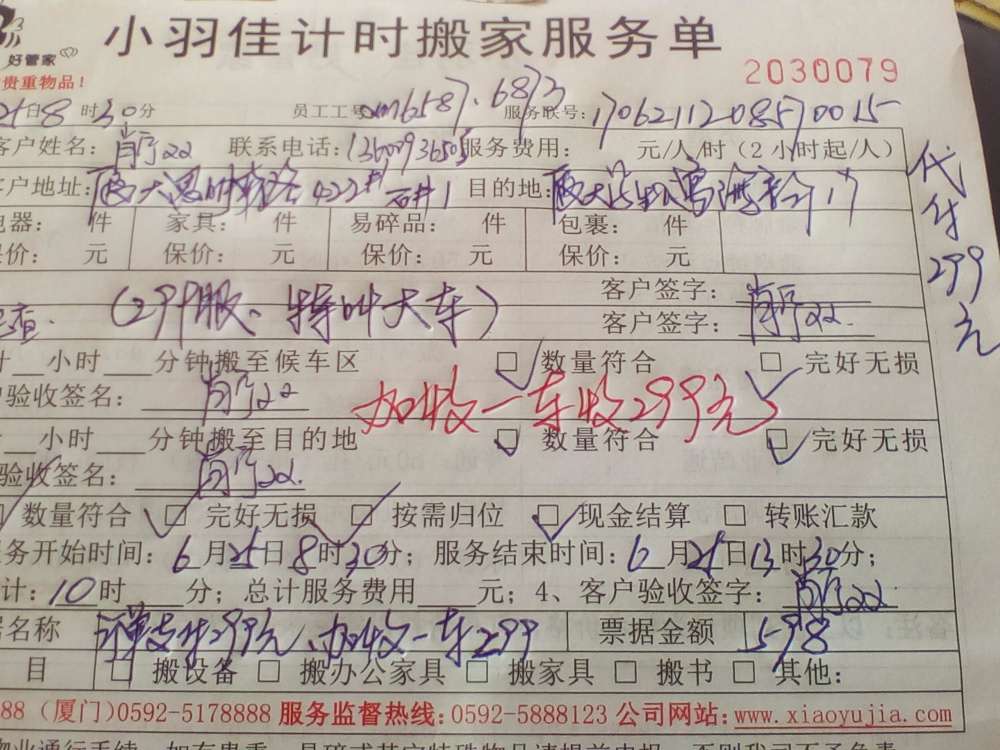 小羽佳计时搬家服务单
好管家
贵重物品！
2030079
25日8时30分 员工工号 xm6587、6873 服务联号：1706211208570015
客户姓名： 联系电话：13600936505 服务费用： 元/人/时（2小时起/人）
客户地址： 422# 石井1 目的地： 17
代付299元
电器： 件 家具： 件 易碎品： 件 包裹： 件
保价： 元 保价： 元 保价： 元 保价： 元
（299服、特叫大车） 客户签字：
客户签字：
计 小时 分钟搬至候车区 □ 数量符合 □ 完好无损
户验收签名： 加收一车收299元
计 小时 分钟搬至目的地 □ 数量符合 □ 完好无损
验收签名：
数量符合 □ 完好无损 □ 按需归位 □ 现金结算 □ 转账汇款
服务开始时间：6月25日8时30分；服务结束时间：6月25日13时30分；
计：10时 分；总计服务费用 元；4、客户验收签字：
据名称 299元、加收一车299 票据金额 598
目 □ 搬设备 □ 搬办公家具 □ 搬家具 □ 搬书 □ 其他：
88（厦门）0592-5178888 服务监督热线：0592-5888123 公司网站：www.xiaoyujia.com